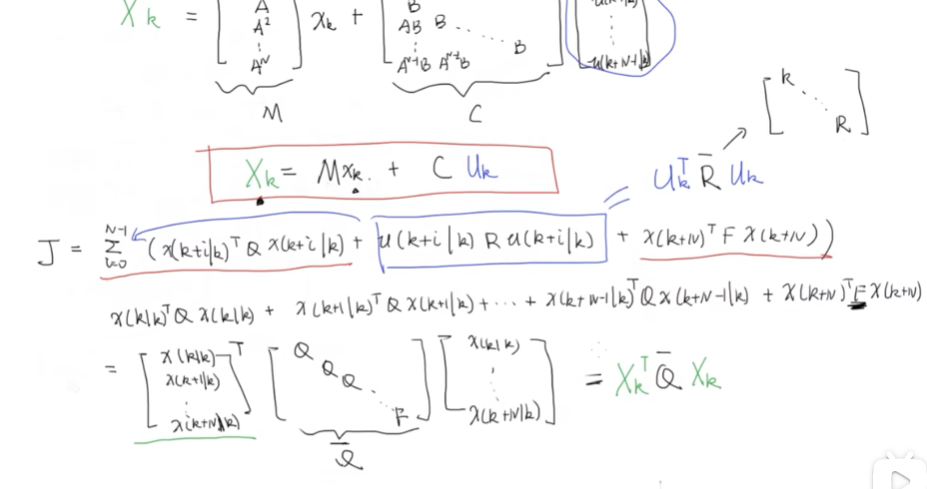 X_k = [A A² ⋮ A^N] x_k + [B AB B ⋱ B ⋮ A^{N-1}B A^{N-2}B] [⋮ u(k+N-1|k)]
M C
[R ⋱ R]
X_k = Mx_k. + C U_k
U_k^T R̄ U_k
J = Σ_{i=0}^{N-1} (x(k+i|k)^T Q x(k+i|k) + u(k+i|k) R u(k+i|k) + x(k+N)^T F x(k+N))
x(k|k)^T Q x(k|k) + x(k+1|k)^T Q x(k+1|k) + ⋯ + x(k+N-1|k)^T Q x(k+N-1|k) + x(k+N)^T F x(k+N)
= [x(k|k) x(k+1|k) ⋮ x(k+N|k)]^T [Q Q Q ⋱ F] [x(k|k) ⋮ x(k+N|k)] = X_k^T Q̄ X_k
Q̄